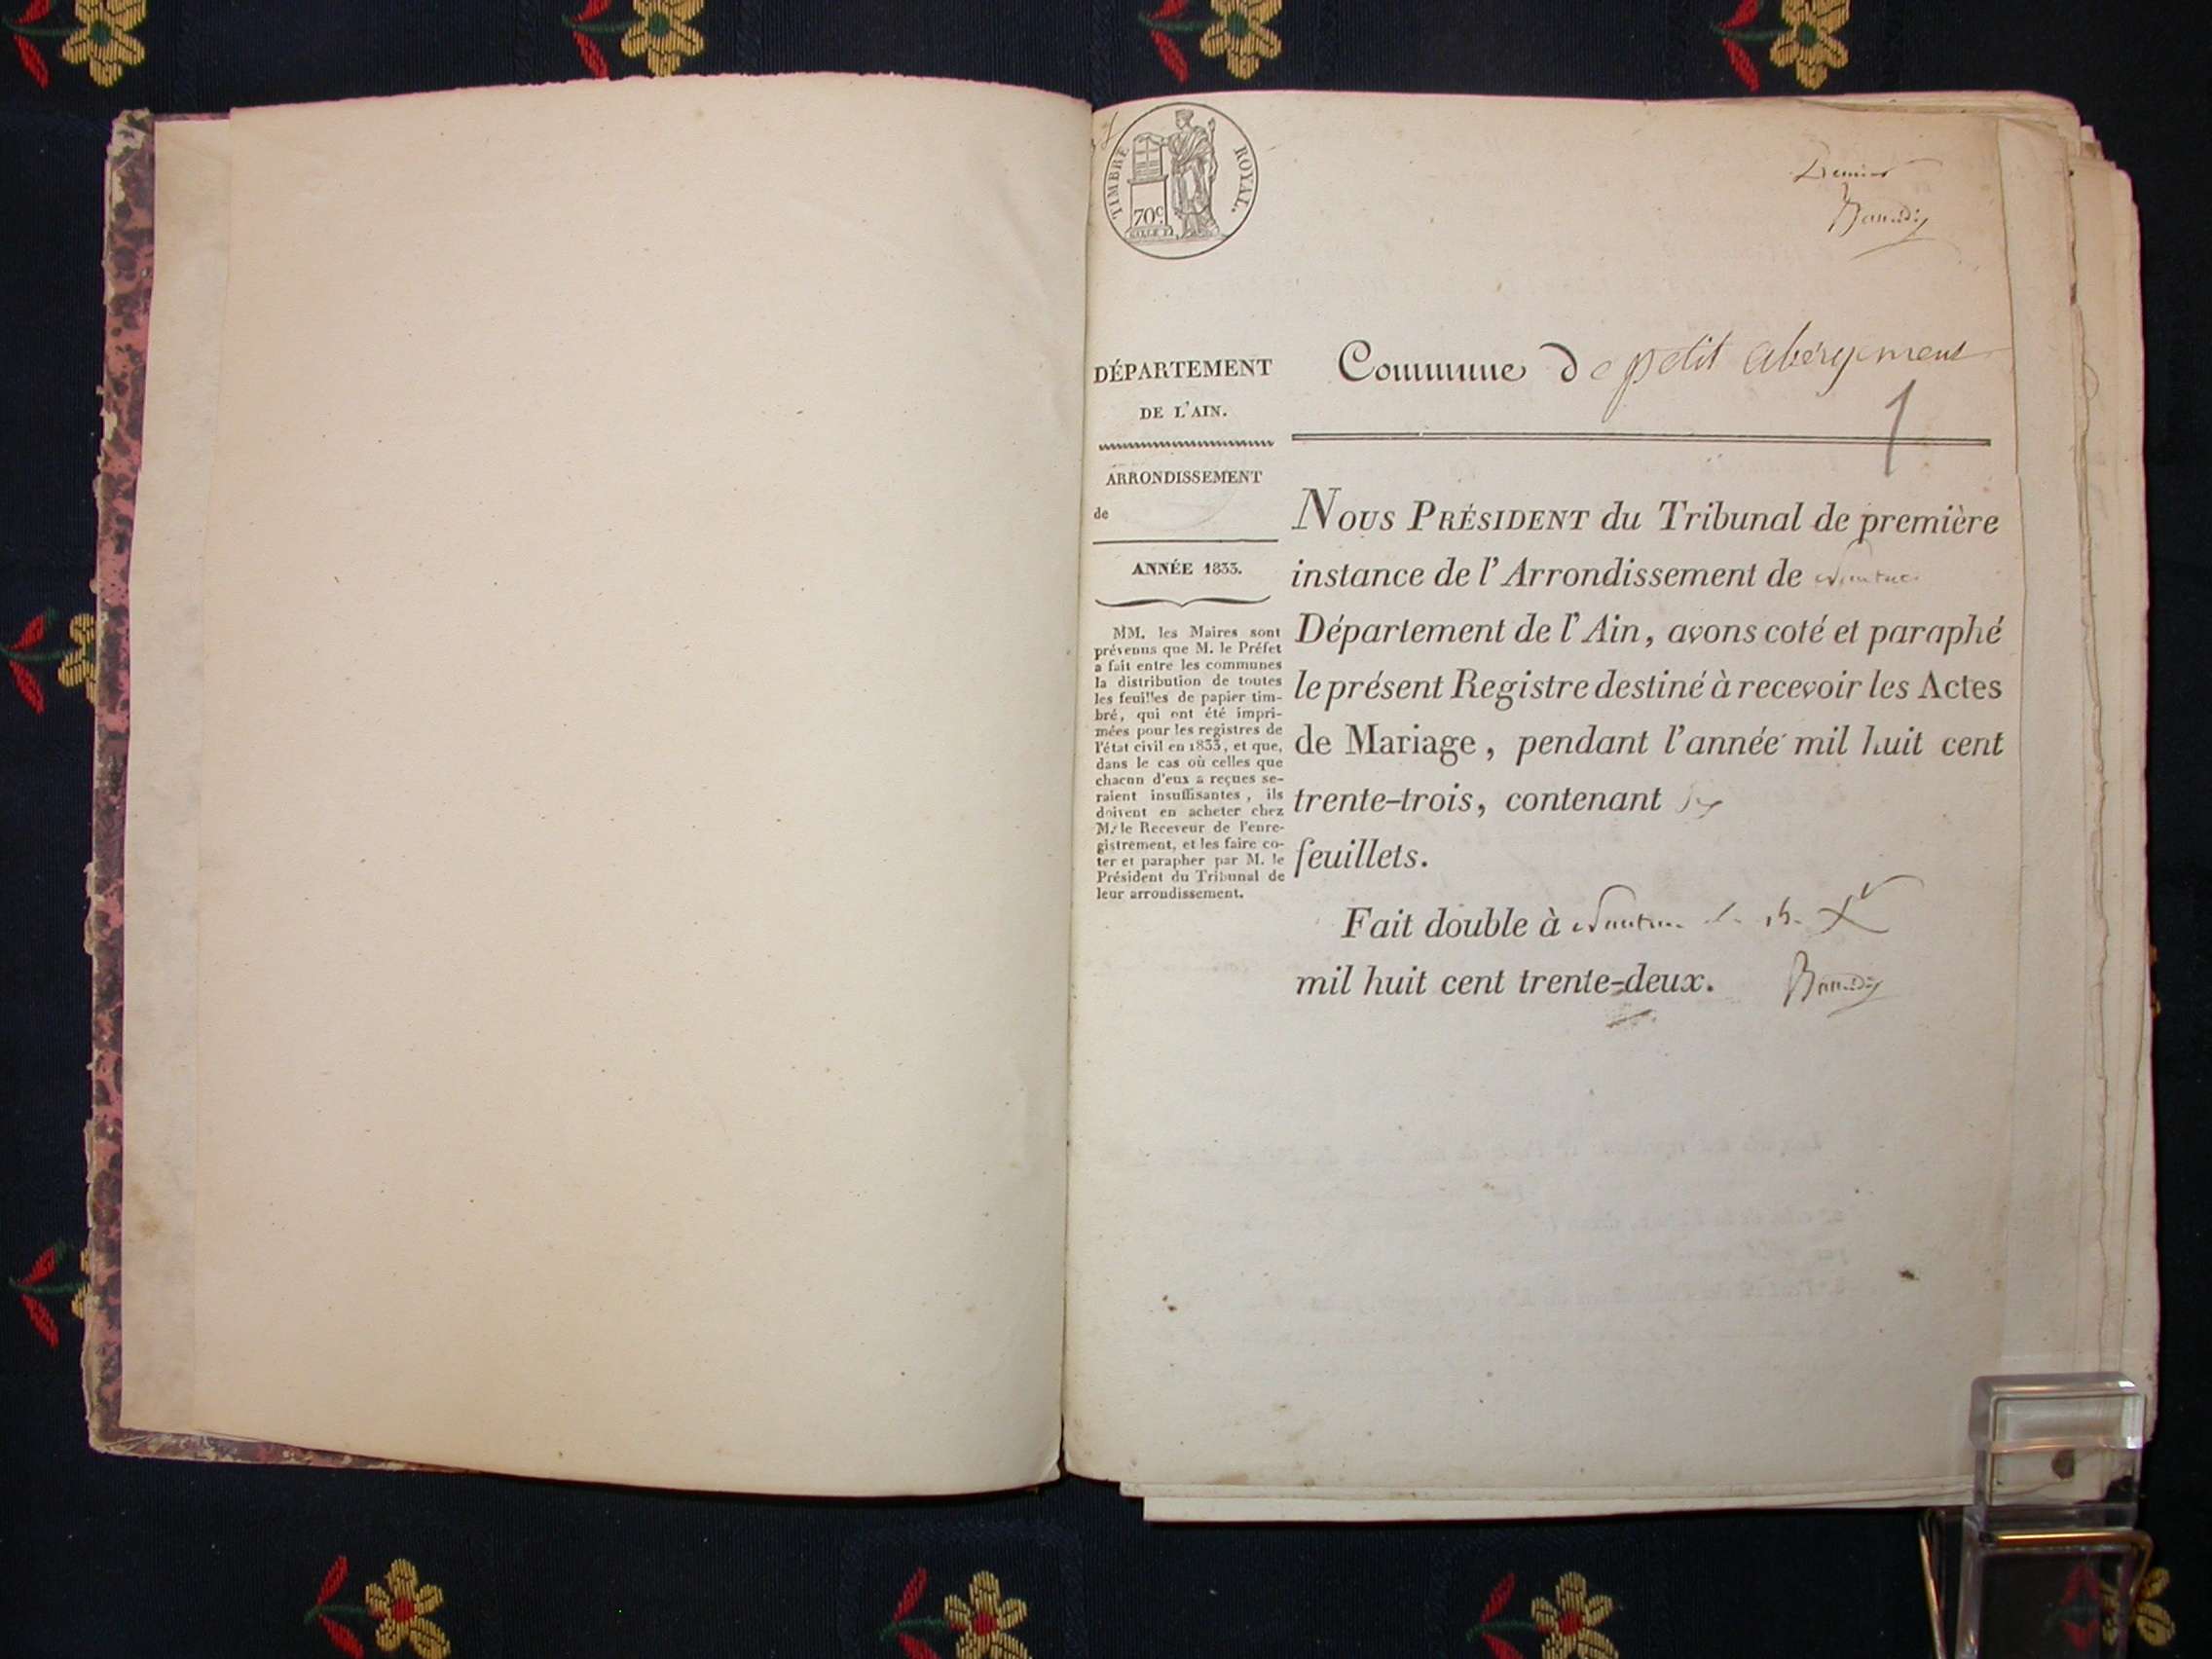 TIMBRE ROYAL.
70c.
Premier
DÉPARTEMENT
DE L'AIN.
ARRONDISSEMENT
de
ANNÉE 1833.
MM. les Maires sont
prévenus que M. le Préfet
a fait entre les communes
la distribution de toutes
les feuilles de papier tim-
bré, qui ont été impri-
mées pour les registres de
l'état civil en 1833, et que,
dans le cas où celles que
chacun d'eux a reçues se-
raient insuffisantes, ils
doivent en acheter chez
M. le Receveur de l'enre-
gistrement, et les faire co-
ter et parapher par M. le
Président du Tribunal de
leur arrondissement.
Commune de petit abergement
1
NOUS PRÉSIDENT du Tribunal de première
instance de l'Arrondissement de Nantua
Département de l'Ain, avons coté et paraphé
le présent Registre destiné à recevoir les Actes
de Mariage, pendant l'année mil huit cent
trente-trois, contenant
feuillets.
Fait double à Nantua le 15 Xr
mil huit cent trente-deux.